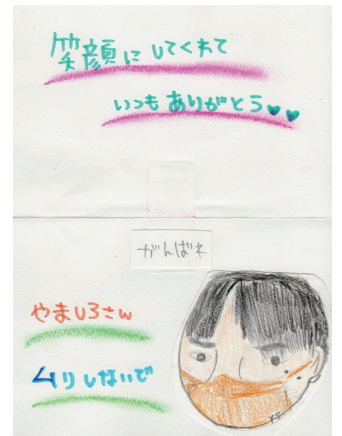 笑顔にしてくれて
いつもありがとう
がんばれ
やましろさん
ムリしないで